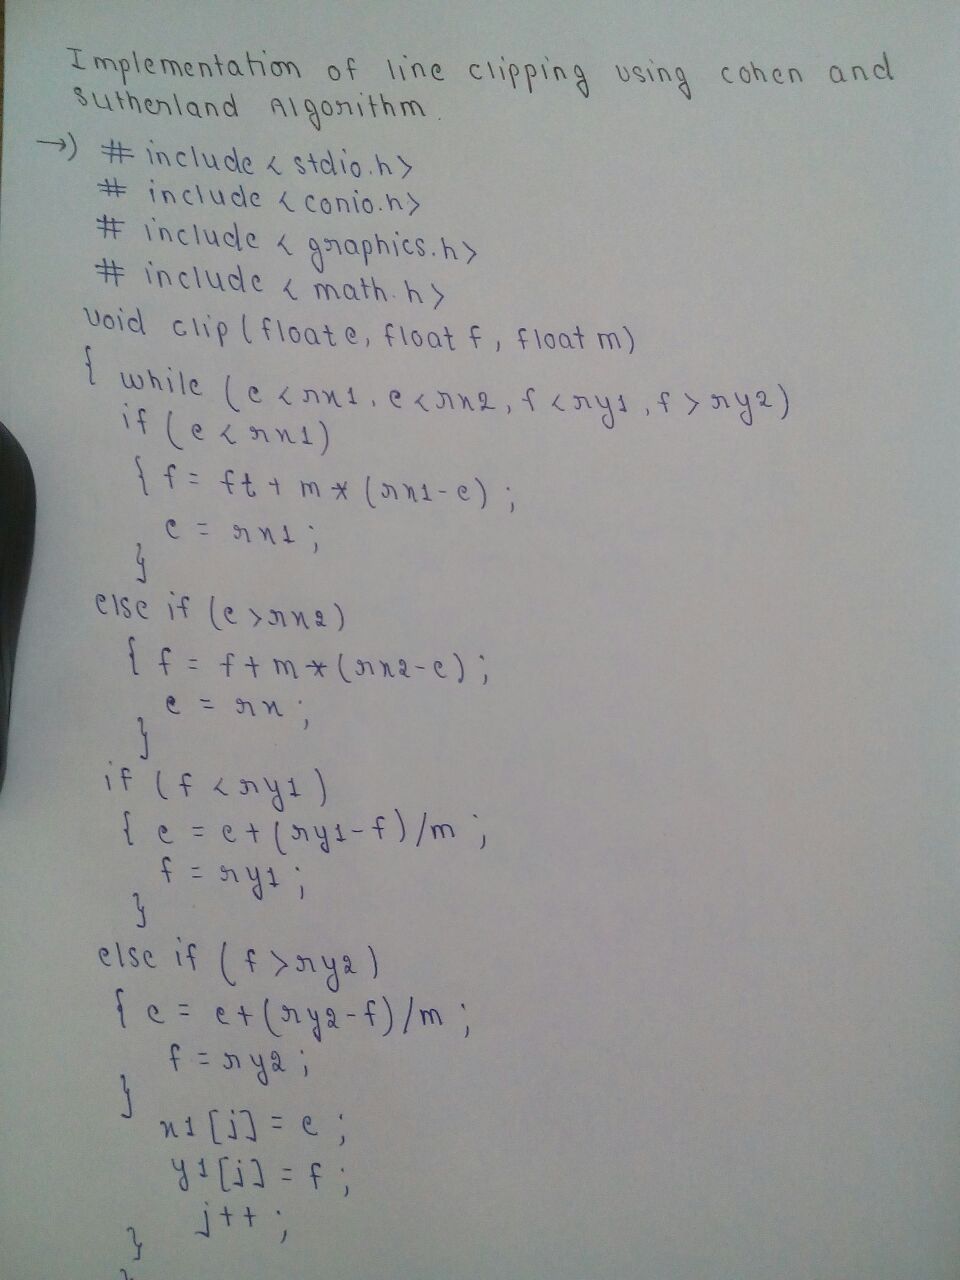 Implementation of line clipping using cohen and
Sutherland Algorithm.
→) # include < stdio.h>
# include < conio.h>
# include < graphics.h>
# include < math.h>
void clip (float e, float f, float m)
{ while (e < rx1, e < rx2, f < ry1, f > ry2)
if (e < rx1)
{ f = ft + m * (rx1 - e) ;
e = rx1 ;
}
else if (e > rx2)
{ f = f + m * (rx2 - e) ;
e = rx ;
}
if ( f < ry1 )
{ e = e + (ry1 - f) / m ;
f = ry1 ;
}
else if ( f > ry2 )
{ e = e + (ry2 - f) / m ;
f = ry2 ;
}
x1 [j] = e ;
y1 [j] = f ;
j++ ;
}
}